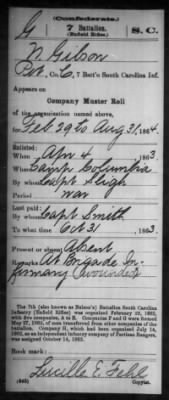 (Confederate.)
G 7 Battalion. S. C.
(Enfield Rifles)
N Gibson
Pvt, Co. C, 7 Batt'n South Carolina Inf.
Appears on
Company Muster Roll
of the organization named above,
for Feb 29 to Aug 31, 1864.
Enlisted:
When Apr 4, 1863.
Where Camp Columbia
By whom Capt Sligh
Period war
Last paid:
By whom Capt Smith
To what time Oct 31, 1863.
Present or absent Absent
Remarks At Brigade In-
firmary (wounded)
The 7th (also known as Nelson's) Battalion South Carolina
Infantry (Enfield Rifles) was organized February 22, 1862,
with five companies, A to E. Companies F and G were formed
May 17, 1862, of men transferred from other companies of the
battalion. Company H, which had been organized July 14,
1862, as an independent company of Partisan Rangers,
was assigned October 14, 1862.
Book mark:
Lucille E. Fehl
(642) Copyist.